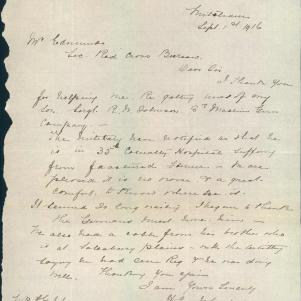 Sept 1st 1916
Mr Edmunds
Sec. Red Cross Bureau
Dear Sir
I Thank You
for helping me. Re getting word of my
son Sergt. R. W. Johnson 3rd Machine Gun
Company —
The Military have notified us that he
is in 35th Casualty Hospital suffering
from fractured femur — We are
relieved it is no worse & a great
comfort to know where he is.
It seemed so long waiting I began to think
the Germans must have him —
We also had a cable from his brother who
is at Salisbury Plains — with the Artillery
saying he had seen Reg & he was doing
well. Thanking You again
I am Yours Sincerely